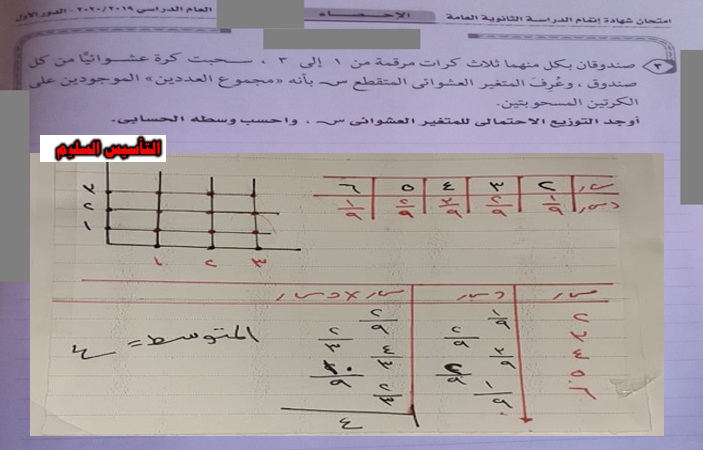 امتحان شهادة إتمام الدراسة الثانوية العامة الإحصاء العام الدراسي ٢٠٢٠/٢٠١٩ - الدور الأول
٣ صندوقان بكل منهما ثلاث كرات مرقمة من ١ إلى ٣ ، سحبت كرة عشوائيًا من كل
صندوق ، وعُرف المتغير العشوائى المتقطع س بأنه «مجموع العددين» الموجودين على
الكرتين المسحوبتين.
أوجد التوزيع الاحتمالى للمتغير العشوائى س ، واحسب وسطه الحسابى.
التأسيس السليم
سر ٢ ٣ ٤ ٥ ٦
د(سر) ١/٩ ٢/٩ ٣/٩ ٢/٩ ١/٩
٣
٢
١
١ ٢ ٣
سر د(سر) سر × د(سر)
٢ ١/٩ ٢/٩
٣ ٢/٩ ٢/٣
٤ ٣/٩ ٤/٣
٥ ٢/٩ ١٠/٩
٦ ١/٩ ٢/٣
٤
المتوسط = ٤